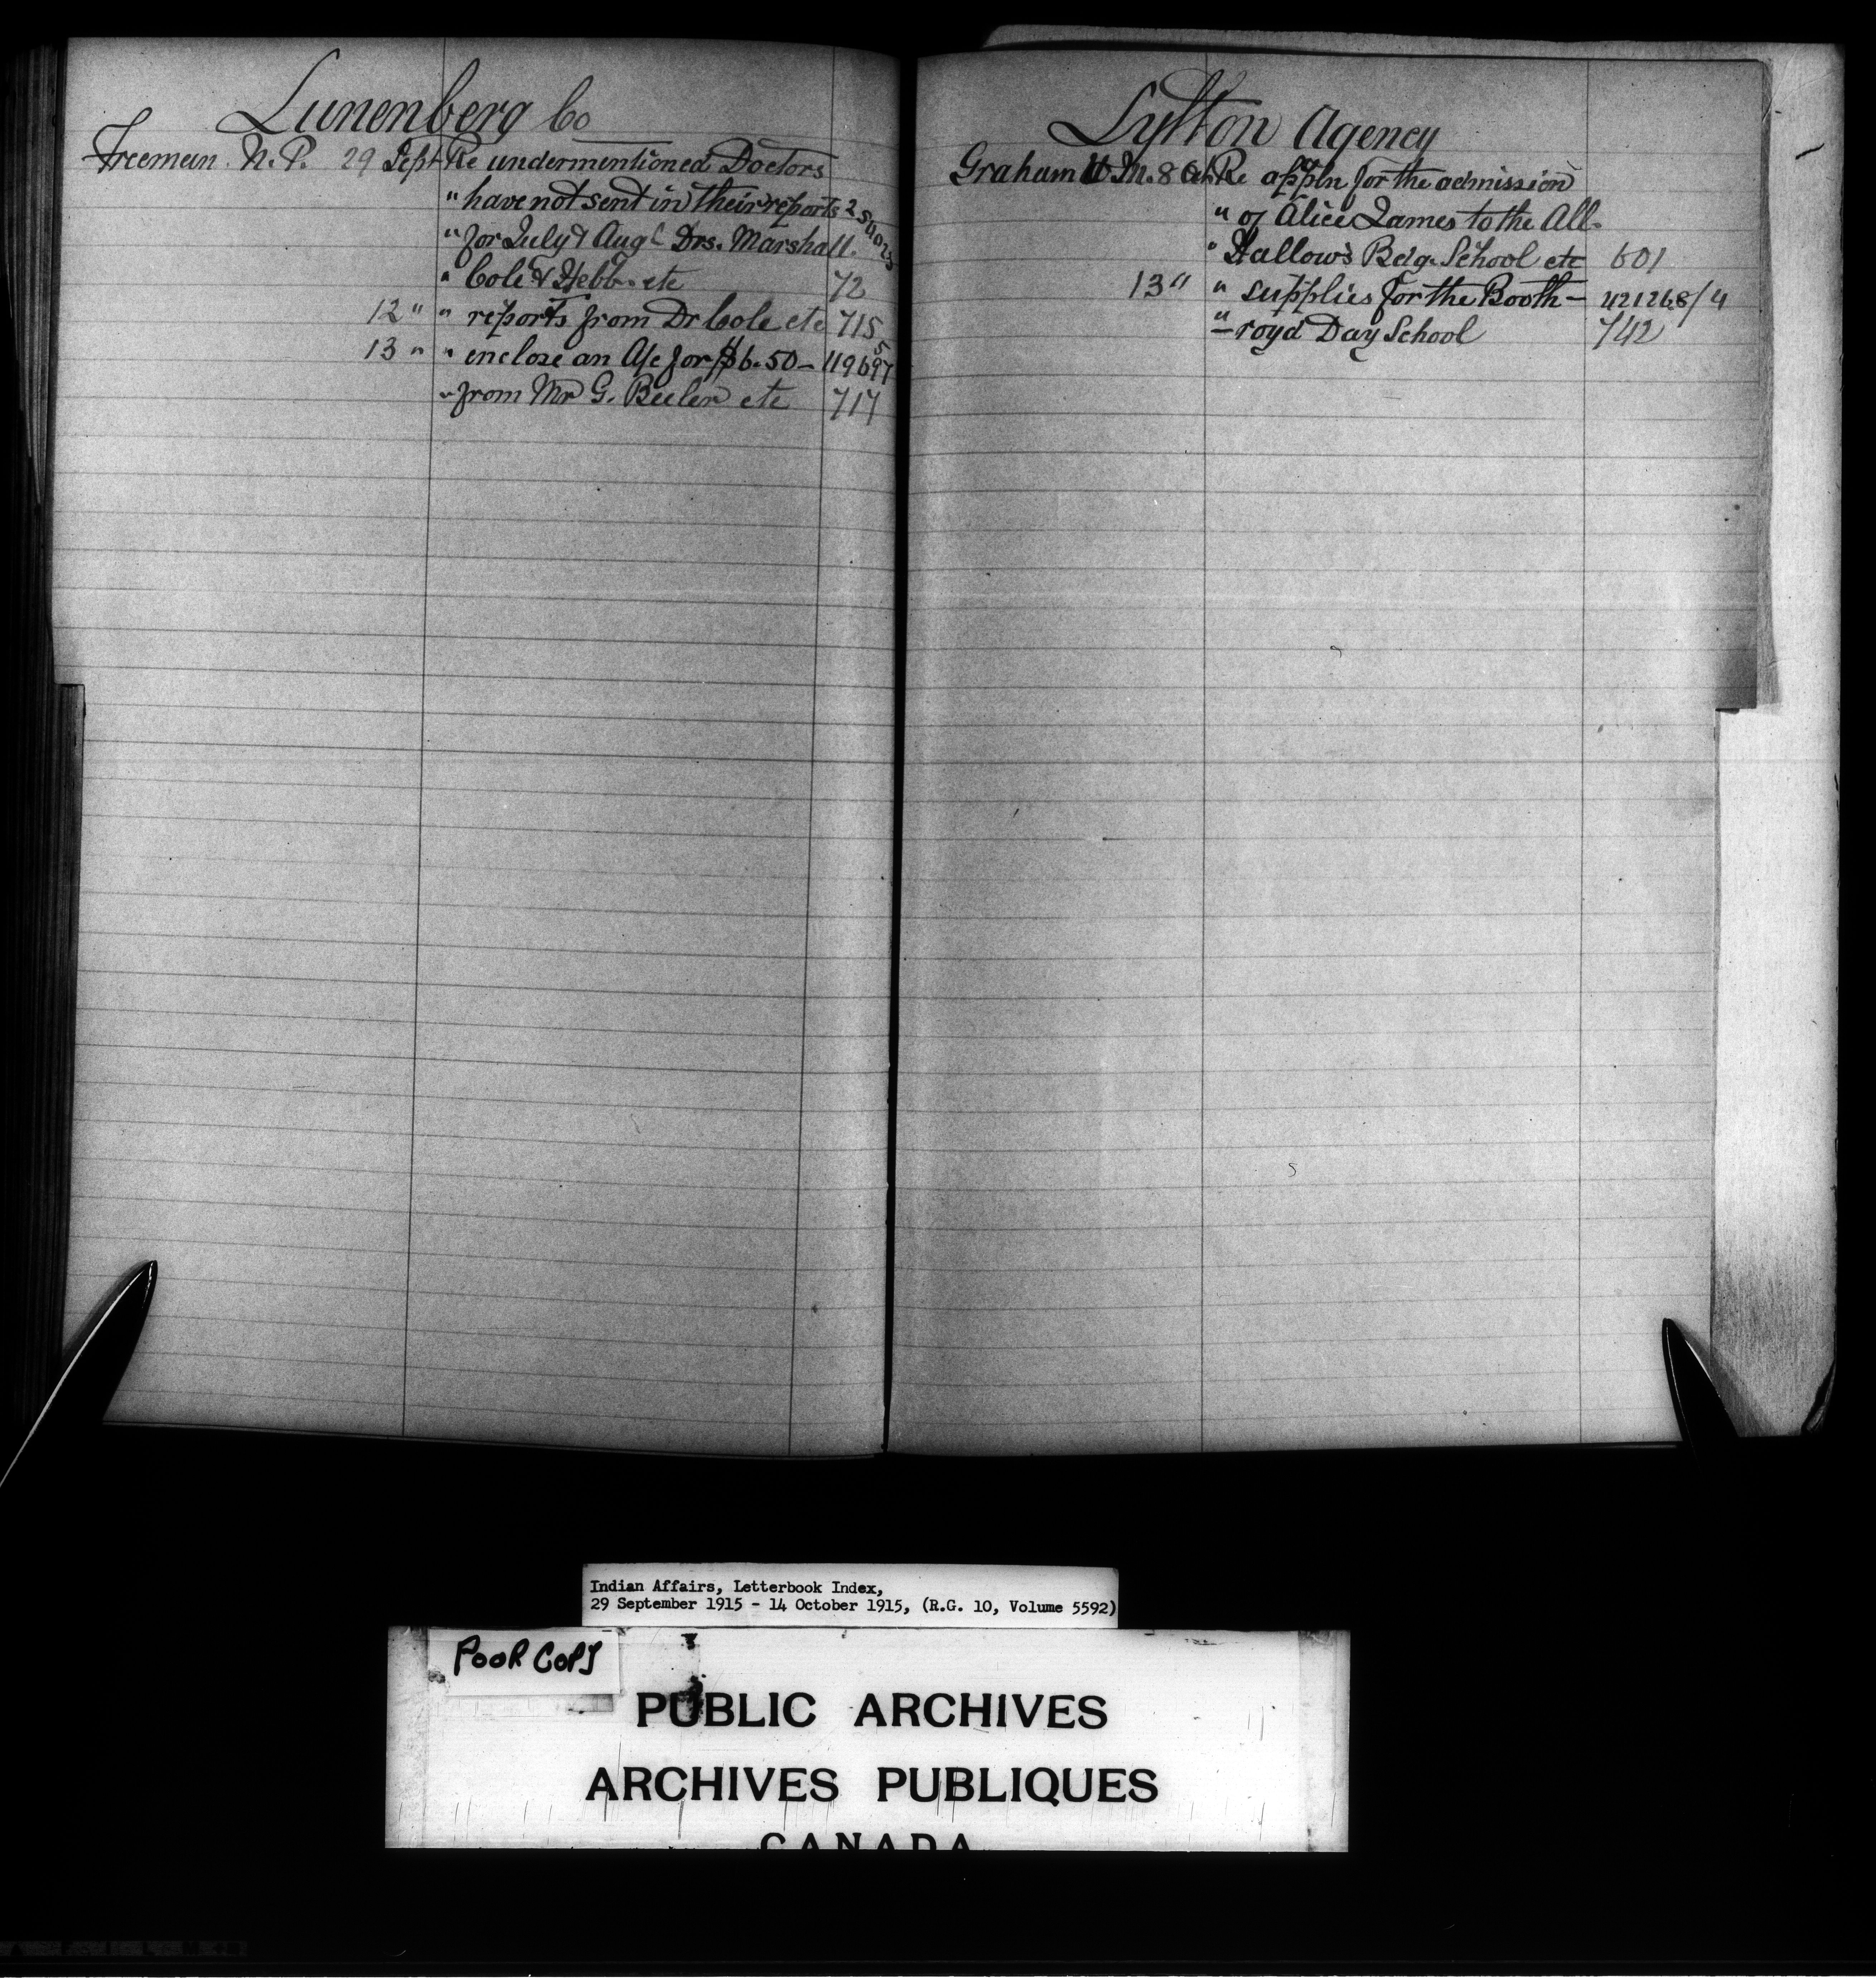 Lunenberg Co
Freeman. N. P. 29 Sept Re undermentioned Doctors
" have not sent in their reports 254023
" for July & Augt Drs. Marshall.
" Cole & Hebb. etc 72
12 " " reports from Dr Cole etc 715
13 " " enclose an A/c for $6.50 - 119697
" from Mr G. etc 717
Lytton Agency
Graham H M. 8 Oct Re appln for the admission
" of Alice James to the All-
" Hallows Bdg. School etc 601
13 " " supplies for the Booth - 421268/4
" - royd Day School 742
Indian Affairs, Letterbook Index,
29 September 1915 - 14 October 1915, (R.G. 10, Volume 5592)
POOR COPY
PUBLIC ARCHIVES
ARCHIVES PUBLIQUES
CANADA